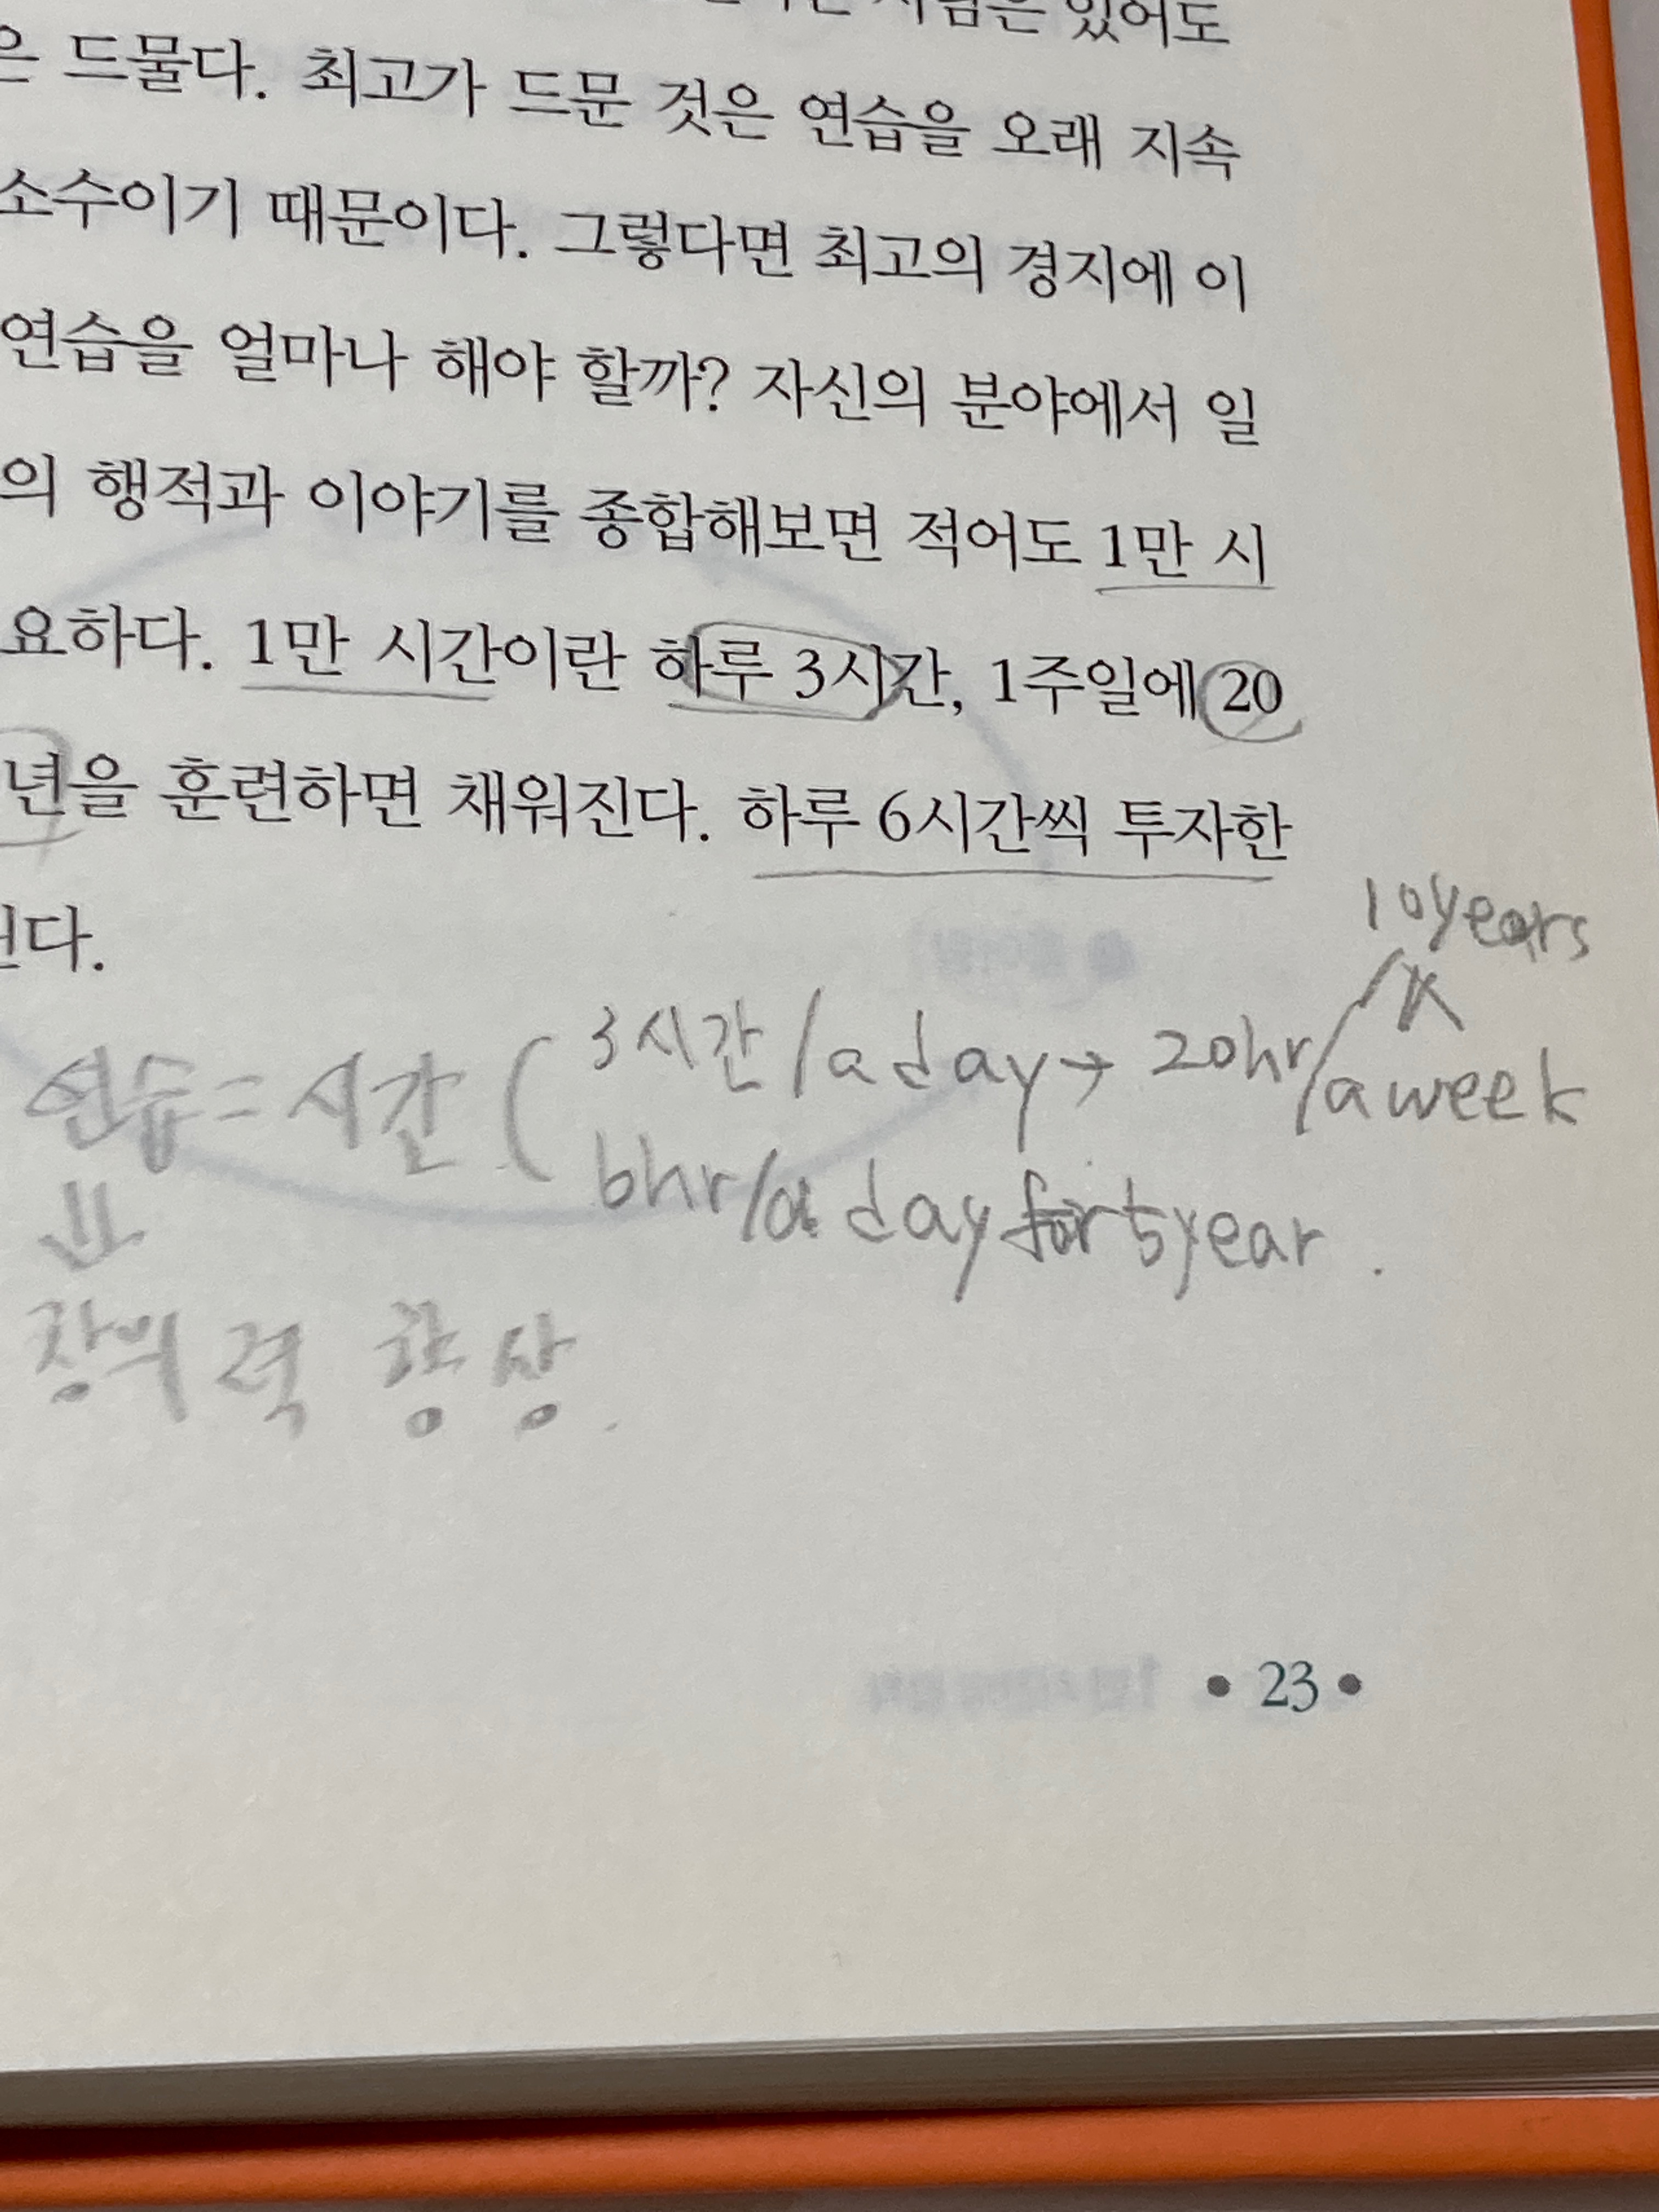 사람은 있어도
은 드물다. 최고가 드문 것은 연습을 오래 지속
소수이기 때문이다. 그렇다면 최고의 경지에 이
연습을 얼마나 해야 할까? 자신의 분야에서 일
의 행적과 이야기를 종합해보면 적어도 1만 시
요하다. 1만 시간이란 하루 3시간, 1주일에 20
년을 훈련하면 채워진다. 하루 6시간씩 투자한
다.
10years
연습 = 시간 ( 3시간/a day → 20hr/a week
6hr/a day for 5year.
⇓
창의력 향상.
• 23 •